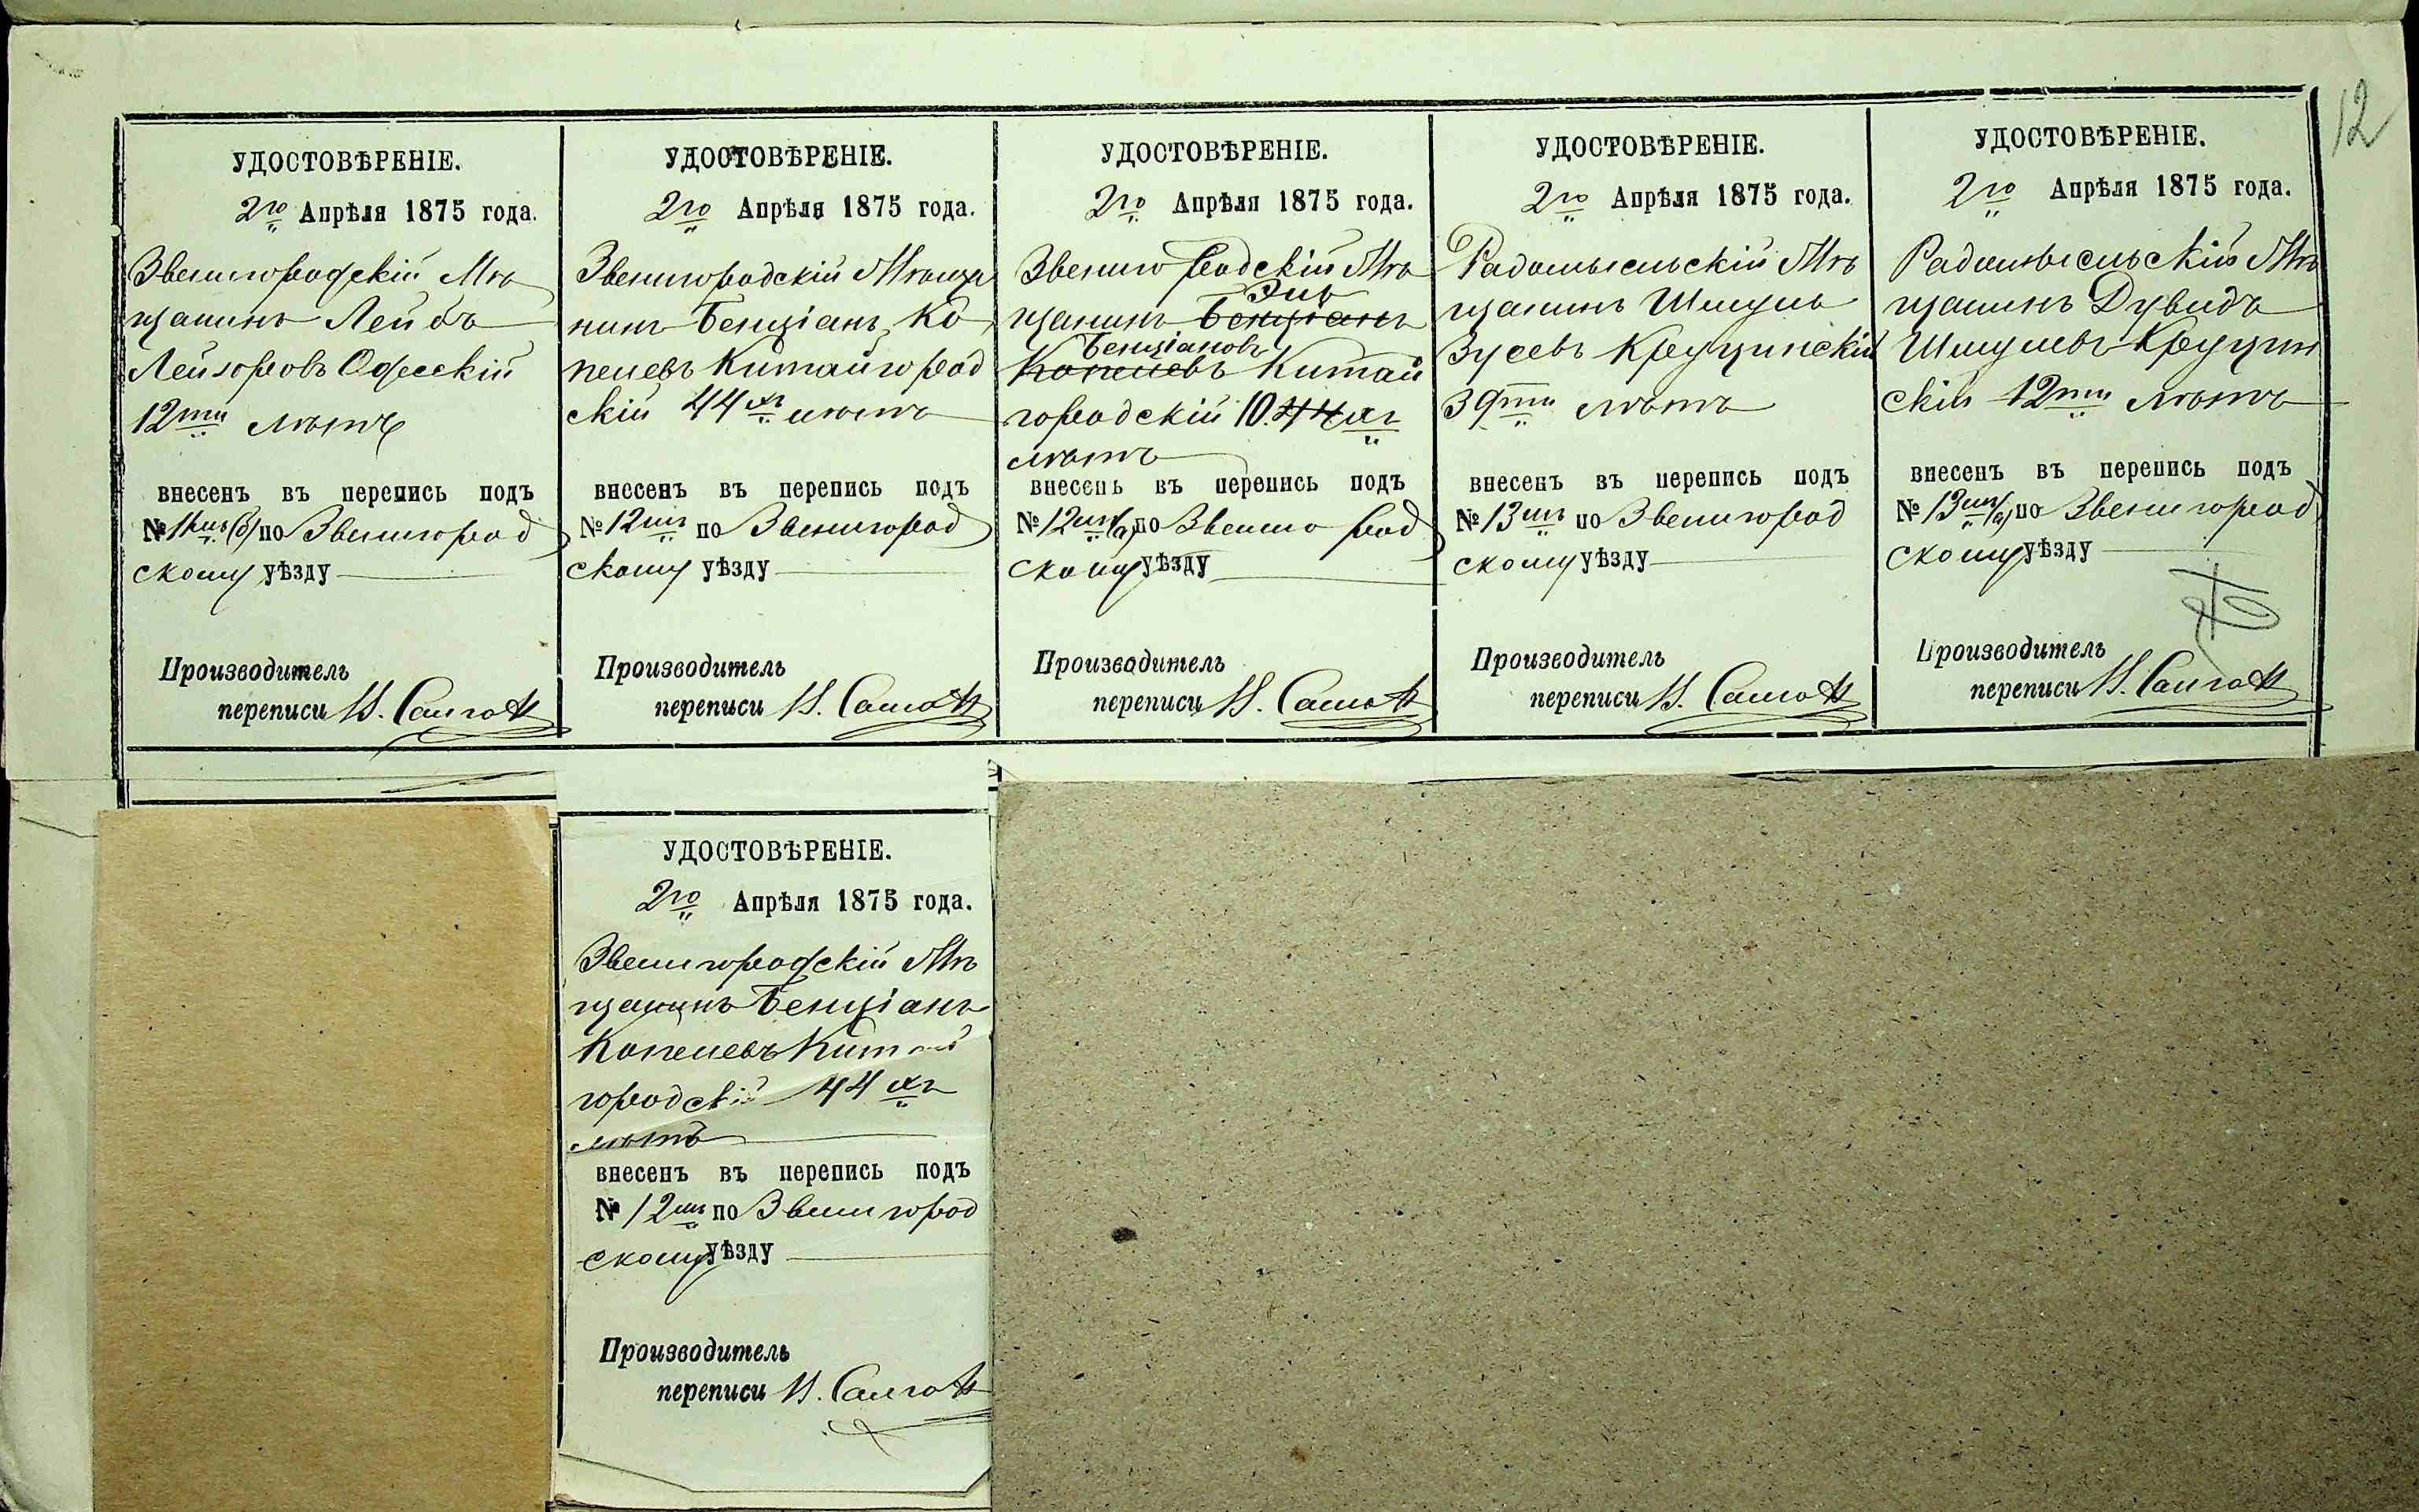 12
УДОСТОВѢРЕНІЕ.
2го Апрѣля 1875 года.
Звенигородскій Мѣ
щанинъ Лейбъ
Лейзоровъ Одесскій
12ти лѣтъ
внесенъ въ перепись подъ
№ 11мъ (б) по Звенигород
скому уѣзду
Производитель
переписи И.
УДОСТОВѢРЕНІЕ.
2го Апрѣля 1875 года.
Звенигородскій Мѣща
нинъ Бенціанъ Ко
пелевъ Китайгород
скій 44хъ лѣтъ
внесенъ въ перепись подъ
№ 12мъ по Звенигород
скому уѣзду
Производитель
переписи И.
УДОСТОВѢРЕНІЕ.
2го Апрѣля 1875 года.
Звенигородскій Мѣ
щанинъ Бенціанъ
Бенціановъ
Копелевъ Китай
городскій 10. 44хъ
лѣтъ
внесенъ въ перепись подъ
№ 12мъ (а) по Звенигород
скому уѣзду
Производитель
переписи И.
УДОСТОВѢРЕНІЕ.
2го Апрѣля 1875 года.
Радомысльскій Мѣ
щанинъ Шмуль
Зусевъ Круцинскій
39ти лѣтъ
внесенъ въ перепись подъ
№ 13мъ по Звенигород
скому уѣзду
Производитель
переписи И.
УДОСТОВѢРЕНІЕ.
2го Апрѣля 1875 года.
Радомысльскій Мѣ
щанинъ Дувидъ
Шмулевъ Круцин
скій 12ти лѣтъ
внесенъ въ перепись подъ
№ 13мъ (а) по Звенигород
скому уѣзду
Производитель
переписи И.
УДОСТОВѢРЕНІЕ.
2го Апрѣля 1875 года.
Звенигородскій Мѣ
щанинъ Бенціанъ
Копелевъ Китай
городскій 44хъ
лѣтъ
внесенъ въ перепись подъ
№ 12мъ по Звенигород
скому уѣзду
Производитель
переписи И.